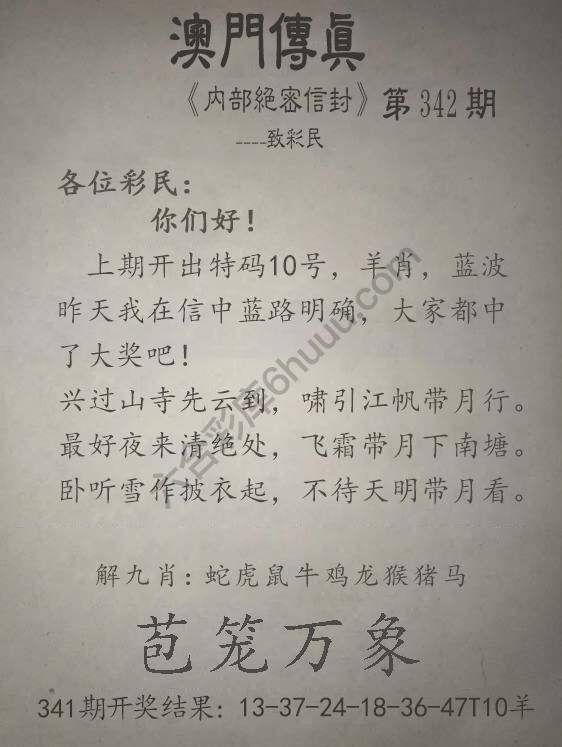 澳門傳眞
《内部絕密信封》第342期
----致彩民
各位彩民：
你们好！
上期开出特码10号，羊肖，蓝波
昨天我在信中蓝路明确，大家都中
了大奖吧！
兴过山寺先云到，啸引江帆带月行。
最好夜来清绝处，飞霜带月下南塘。
卧听雪作披衣起，不待天明带月看。
解九肖：蛇虎鼠牛鸡龙猴猪马
苞笼万象
341期开奖结果：13-37-24-18-36-47T10羊
六合彩库6huuu.com